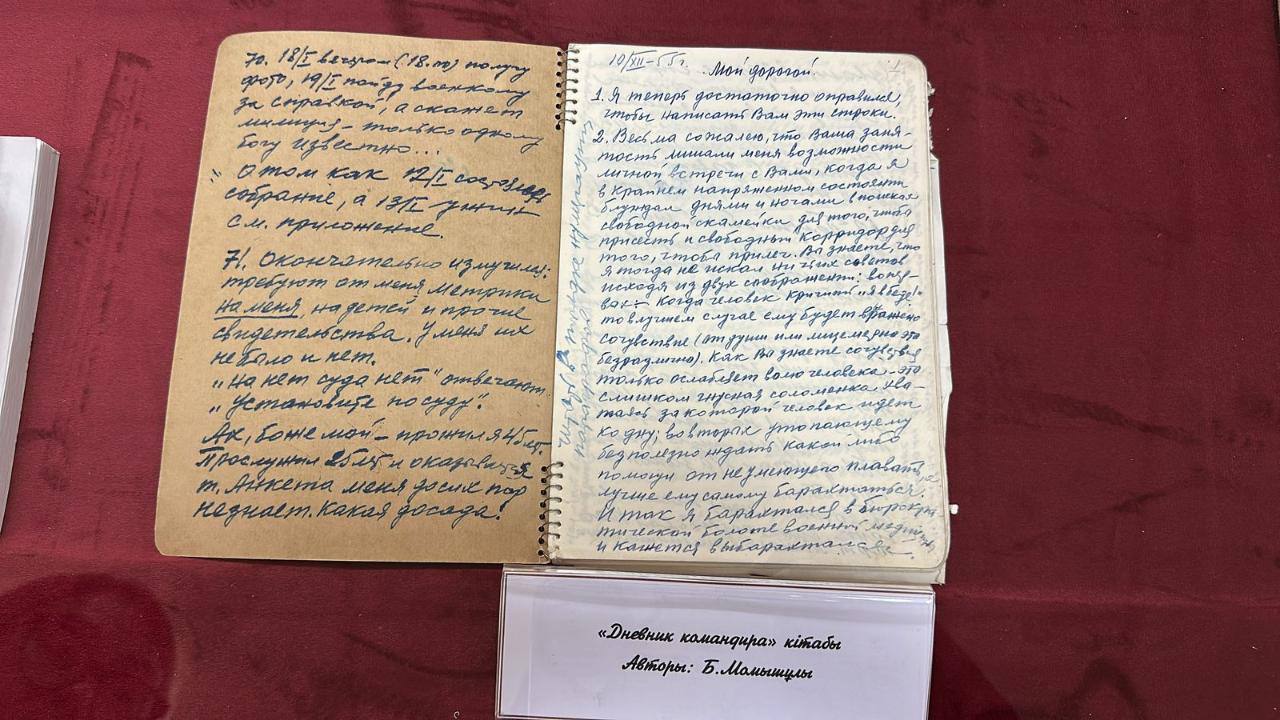 70. 18/I вечером (18.00) получу
фото, 19/I пойду военкому
за справкой, а скажет
милиция – только одному
богу известно...
О том как 12/I состоялся
собрание, а 13/I
см. приложение.
71. Окончательно измучили:
требуют от меня метрики
на меня, на детей и прочие
свидетельства. У меня их
не было и нет.
„На нет суда нет" отвечают.
„Установите по суду".
Ах, боже мой – прожил я 45 лет.
Прослужил 25 лет и оказывается
т. Анкета меня до сих пор
не знает. Какая досада!
10/XII-55г.
Мой дорогой.
1. Я теперь достаточно оправился,
чтобы написать Вам эти строки.
2. Весьма сожалею, что Ваша заня-
тость лишали меня возможности
личной встречи с Вами, когда я
в крайнем напряженном состоянии
блуждал днями и ночами в поисках
свободной скамейки для того, чтоб
присесть и свободный корридор для
того, чтоба прилечь. Вы знаете, что
я тогда не искал ничьих советов
исходя из двух соображении: во пер-
вых – когда человек кричит „я в беде!"
то в лучшем случае ему будет вражено
сочувствие (от души или лицемерно это
безразлично). Как Вы знаете сочувствия
только ослабляет волю человека – это
слишком гнусная соломенка хва-
таясь за которой человек идет
ко дну; во вторых утопающему
бесполезно ждать какой либо
помощи от неумеющего плавать
лучше ему самому барахтаться.
Итак я барахтался в бюрокра
тической болоте военной
и кажется выбарахтался.
параграфов
«Дневник командира» кітабы
Авторы: Б.Момышұлы